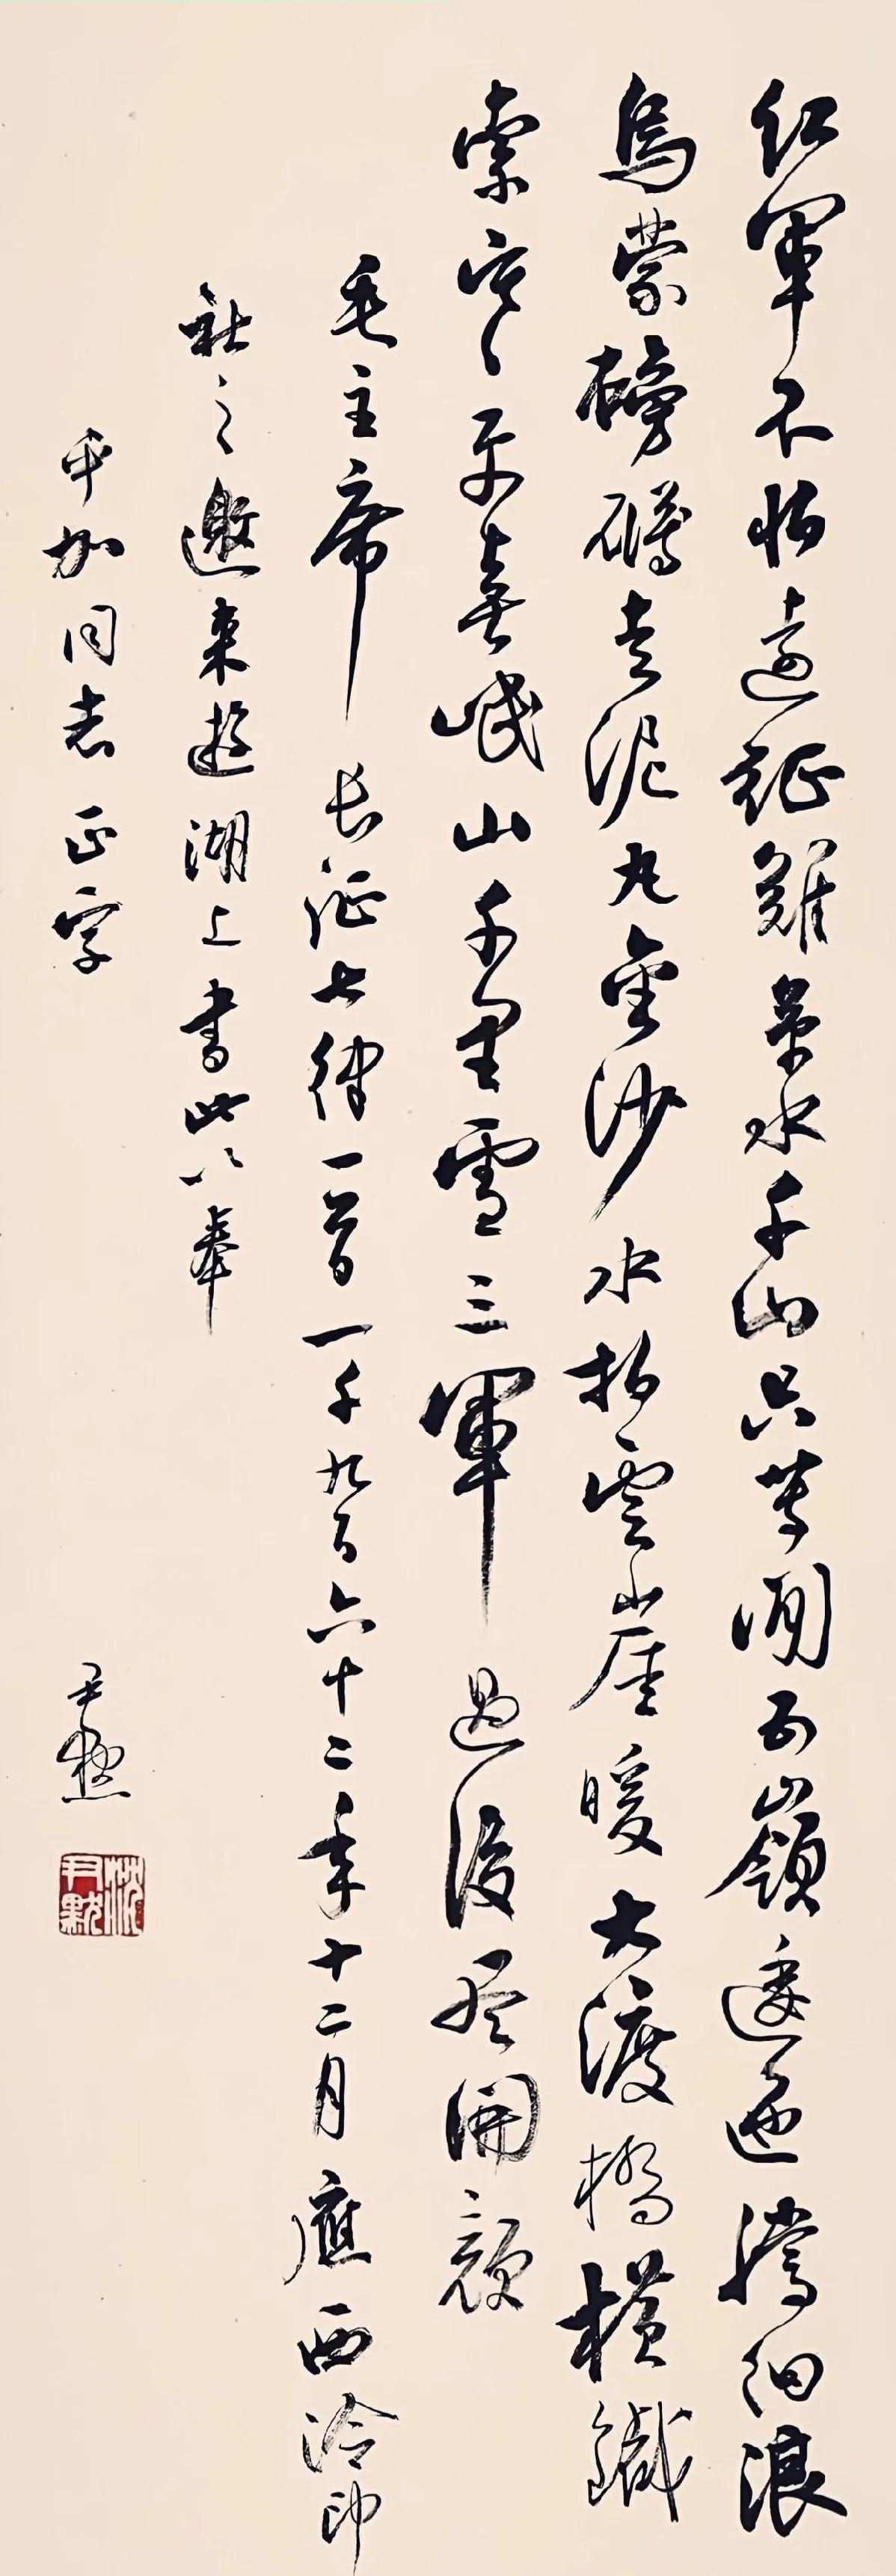 紅軍不怕遠征難萬水千山只等閑五嶺逶迤騰細浪
烏蒙磅礴走泥丸金沙水拍雲崖暖大渡橋橫鐵
索寒更喜岷山千里雪三軍過後尽開顏
毛主席長征七律一首一千九百六十二年十二月應西泠印
社之邀來遊湖上書此以奉
平加同志正字 尹默
沈尹默